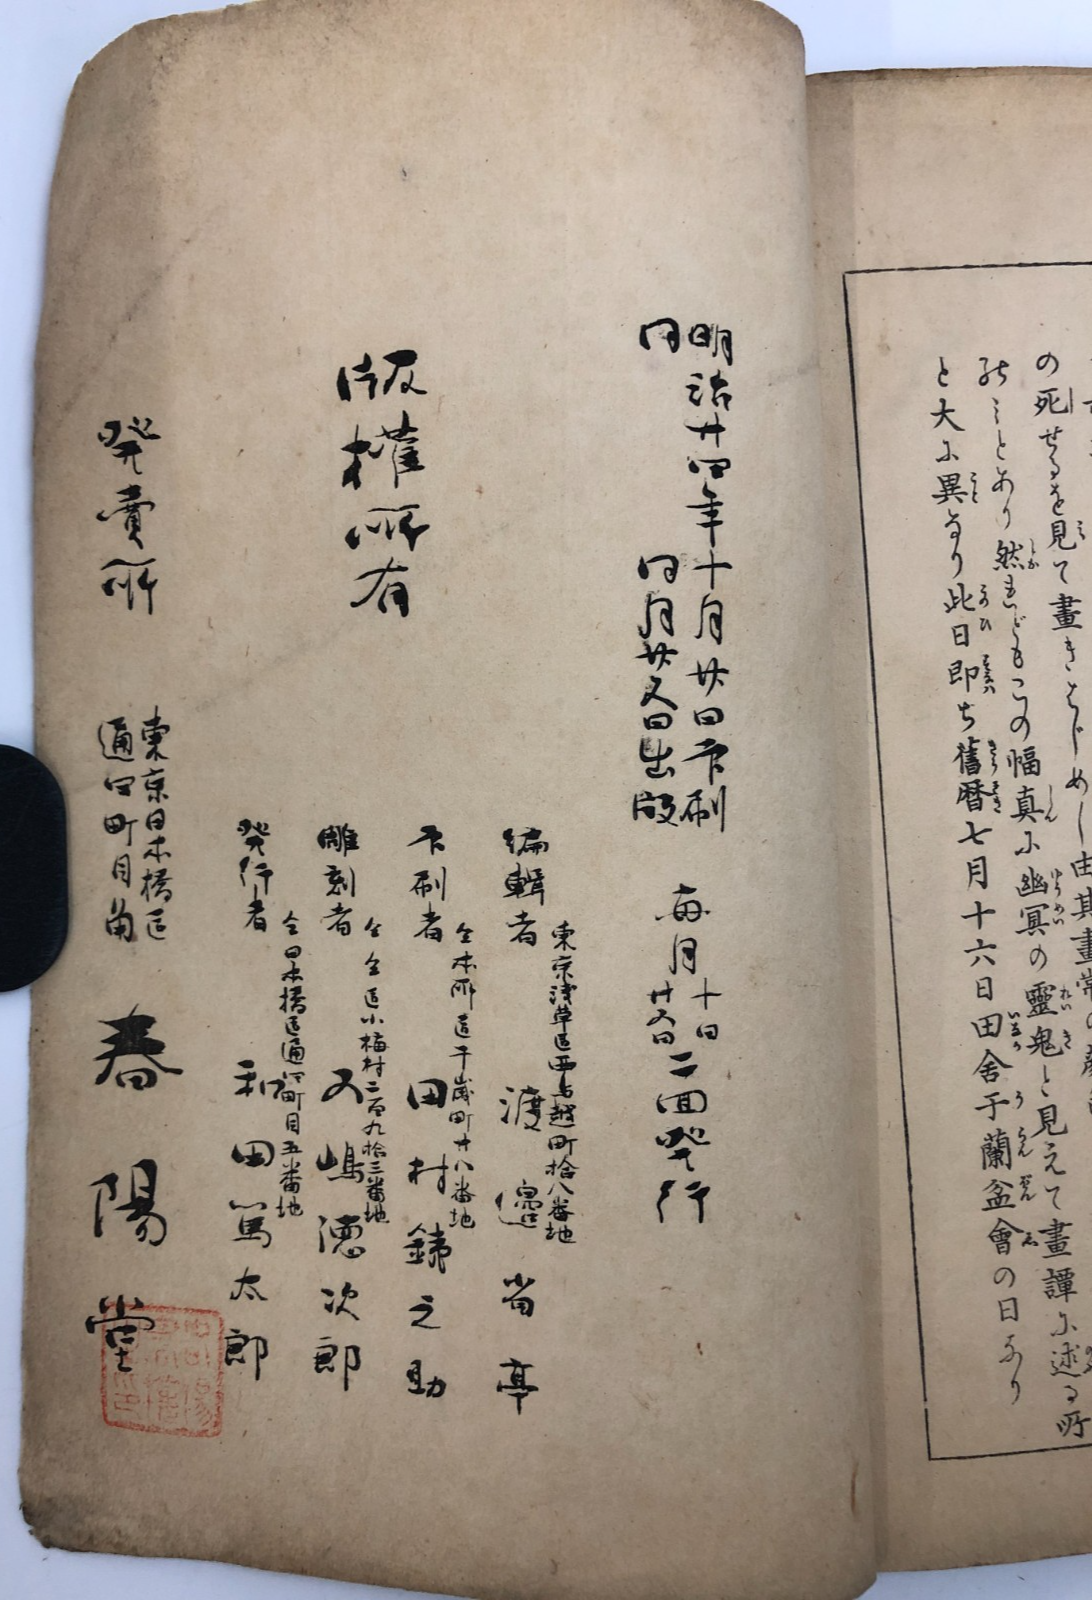 の死せるを見て畫きはじめし由其畫常の
然れどもこの幅真に幽冥の靈鬼と見えて畫譚に述る所
と大に異なり此日即ち舊暦七月十六日田舍于蘭盆會の日なり
明治廿四年十月廿日印刷
同 同月廿五日出版
毎月 十日 廿五日 二回発行
版權所有
編輯者 東京浅草區西鳥越町拾八番地
渡邉省亭
印刷者 仝本所區千歳町廿八番地
田村鐵之助
雕刻者 仝仝區小梅村二百九拾三番地
五嶋德次郎
発行者 仝日本橋區通四町目五番地
和田篤太郎
発賣所 東京日本橋區
通四町目角
春陽堂